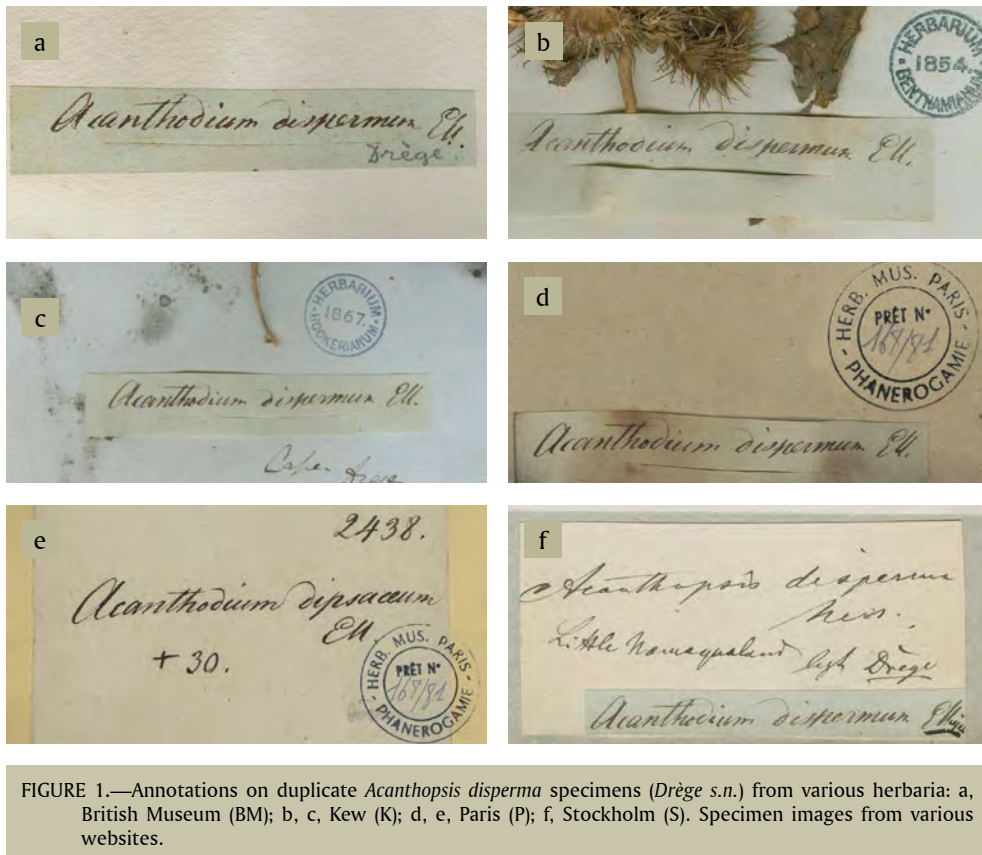 a
Acanthodium dispermum Ell.
Drège.
b
HERBARIUM
1854.
BENTHAMIANUM
Acanthodium dispermum Ell.
c
HERBARIUM
1867.
HOOKERIANUM
Acanthodium dispermum Ell.
Cape. Drege
d
HERB. MUS. PARIS
PRÊT N°
168/81
PHANEROGAMIE
Acanthodium dispermum Ell.
e
2438.
Acanthodium dipsaceum
Ell.
+ 30.
HERB. MUS. PARIS
PRÊT N°
168/81
PHANEROGAMIE
f
Acanthopsis disperma
Nees.
Little Namaqualand legt Drège
Acanthodium dispermum
FIGURE 1.—Annotations on duplicate Acanthopsis disperma specimens (Drège s.n.) from various herbaria: a,
British Museum (BM); b, c, Kew (K); d, e, Paris (P); f, Stockholm (S). Specimen images from various
websites.